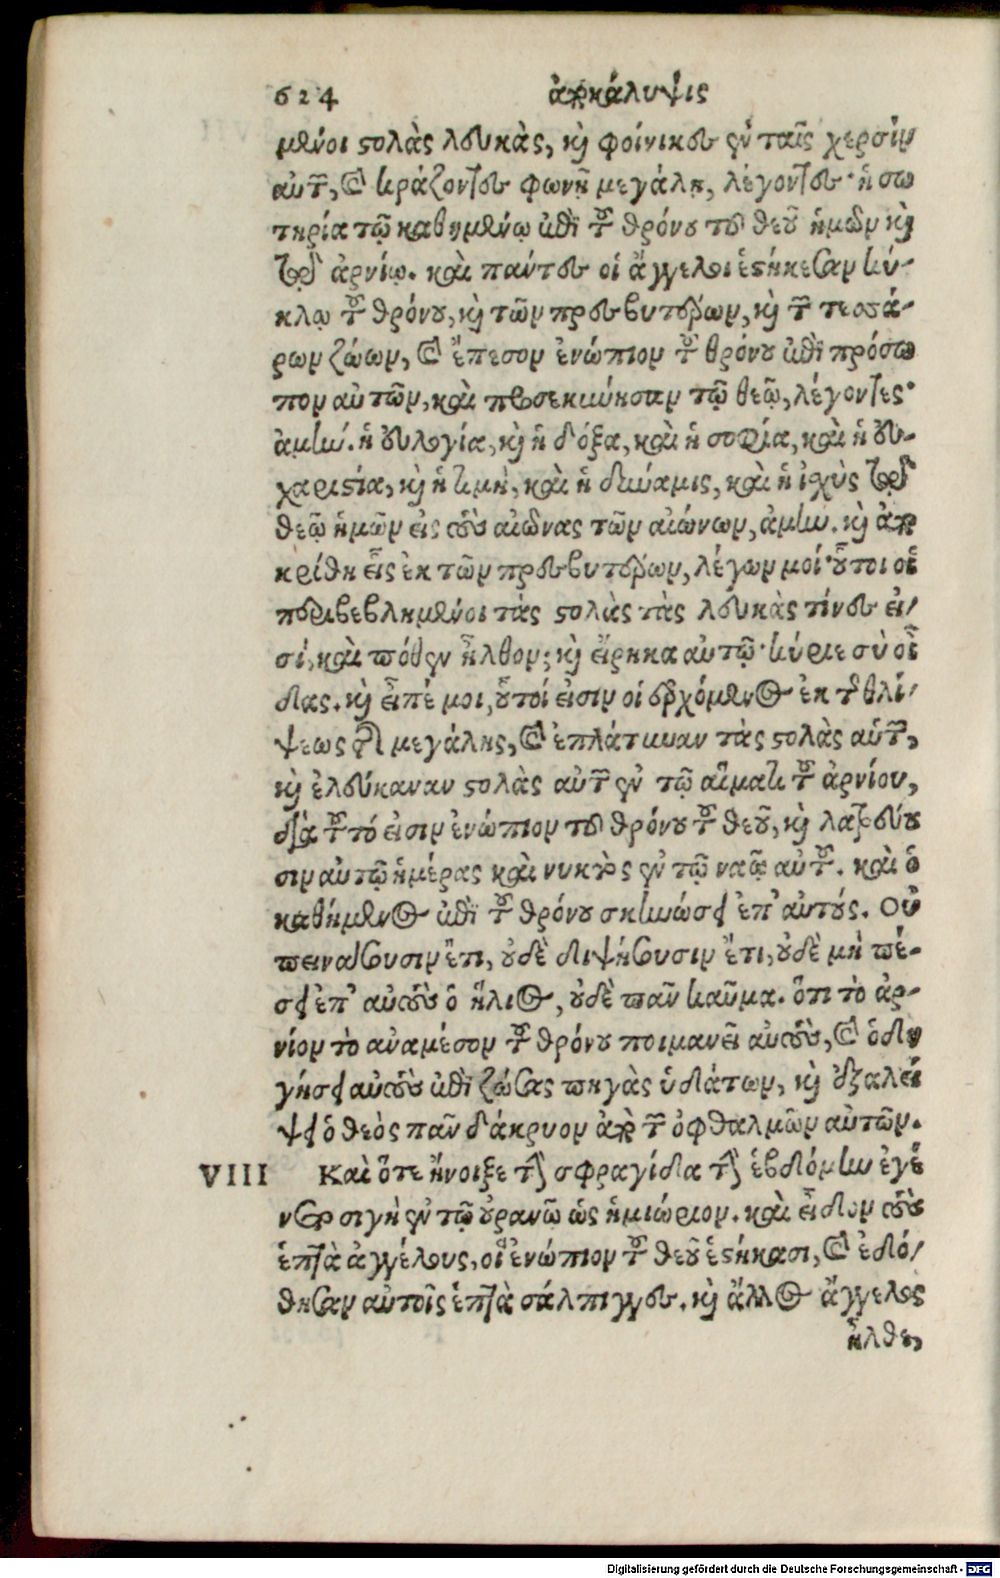 624 ἀποκάλυψις
μένοι στολὰς λευκὰς, καὶ φοίνικες ἐν ταῖς χερσὶν
αὐτῶν, καὶ κράζοντες φωνῇ μεγάλῃ, λέγοντες· ἡ σω
τηρία τῷ καθημένῳ ἐπὶ τοῦ θρόνου τοῦ θεοῦ ἡμῶν καὶ
τῷ ἀρνίῳ. καὶ πάντες οἱ ἄγγελοι ἑστήκεσαν κύ-
κλῳ τοῦ θρόνου, καὶ τῶν πρεσβυτέρων, καὶ τῶν τεσσά-
ρων ζώων, καὶ ἔπεσον ἐνώπιον τοῦ θρόνου ἐπὶ πρόσω
πον αὐτῶν, καὶ προσεκύνησαν τῷ θεῷ, λέγοντες·
ἀμήν. ἡ εὐλογία, καὶ ἡ δόξα, καὶ ἡ σοφία, καὶ ἡ εὐ-
χαριστία, καὶ ἡ τιμὴ, καὶ ἡ δύναμις, καὶ ἡ ἰσχὺς τῷ
θεῷ ἡμῶν εἰς τοὺς αἰῶνας τῶν αἰώνων, ἀμήν. καὶ ἀπε
κρίθη εἷς ἐκ τῶν πρεσβυτέρων, λέγων μοί· οὗτοι οἱ
περιβεβλημένοι τὰς στολὰς τὰς λευκὰς τίνες εἰ-
σί, καὶ πόθεν ἦλθον; καὶ εἴρηκα αὐτῷ· κύριε σὺ οἶ
δας. καὶ εἶπέ μοι, οὗτοί εἰσιν οἱ ἐρχόμενος ἐκ τῆς θλί-
ψεως τῆς μεγάλης, καὶ ἐπλάτυναν τὰς στολὰς αὑτῶν,
καὶ ἐλεύκαναν στολὰς αὐτῶν ἐν τῷ αἵματι τοῦ ἀρνίου,
διὰ τοῦτό εἰσιν ἐνώπιον τοῦ θρόνου τοῦ θεοῦ, καὶ λατρεύου
σιν αὐτῷ ἡμέρας καὶ νυκτὸς ἐν τῷ ναῷ αὐτοῦ. καὶ ὁ
καθήμενος ἐπὶ τοῦ θρόνου σκηνώσει ἐπ' αὐτούς. Οὐ
πεινάσουσιν ἔτι, οὐδὲ διψήσουσιν ἔτι, οὐδὲ μὴ πέ-
σῃ ἐπ' αὐτοὺς ὁ ἥλιος, οὐδὲ πᾶν καῦμα. ὅτι τὸ ἀρ-
νίον τὸ ἀναμέσον τοῦ θρόνου ποιμανεῖ αὐτοὺς, καὶ ὁδη
γήσει αὐτοὺς ἐπὶ ζώσας πηγὰς ὑδάτων, καὶ ἐξαλεί
ψει ὁ θεὸς πᾶν δάκρυον ἀπὸ τῶν ὀφθαλμῶν αὐτῶν.
VIII Καὶ ὅτε ἤνοιξε τὴν σφραγίδα τὴν ἑβδόμην ἐγέ
νετο σιγὴ ἐν τῷ οὐρανῷ ὡς ἡμιώριον. καὶ εἶδον τοὺς
ἑπτὰ ἀγγέλους, οἳ ἐνώπιον τοῦ θεοῦ ἑστήκασι, καὶ ἐδό-
θησαν αὐτοῖς ἑπτὰ σάλπιγγες. καὶ ἄλλος ἄγγελος
ἦλθε,
Digitalisierung gefördert durch die Deutsche Forschungsgemeinschaft - DFG